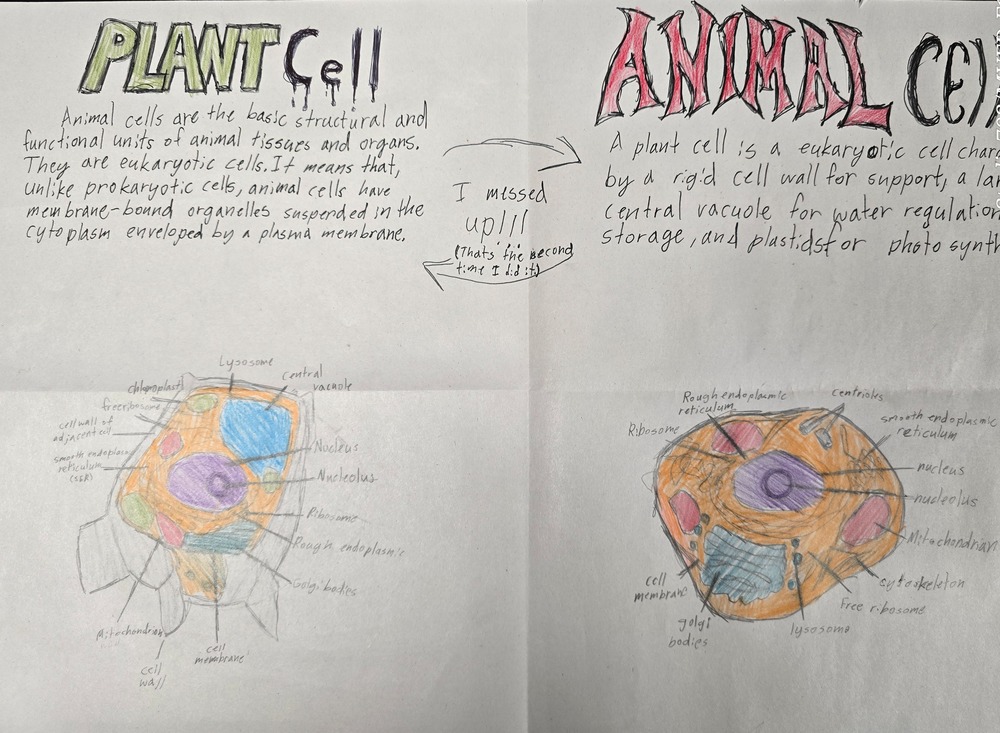 PLANT Cell
Animal cells are the basic structural and
functional units of animal tissues and organs.
They are eukaryotic cells. It means that,
unlike prokaryotic cells, animal cells have
membrane-bound organelles suspended in the
cytoplasm enveloped by a plasma membrane.
I messed
up!!!
(Thats the second
time I did it)
ANIMAL Cell
A plant cell is a eukaryotic cell chara
by a rigid cell wall for support, a lar
central vacuole for water regulation
storage, and plastids for photo synth
Lysosome
central
vacuole
chloroplast
free ribosome
cell wall of
adjacent cell
smooth endoplasm
reticulum
(SER)
Nucleus
Nucleolus
Ribosome
Rough endoplasmic
Golgi bodies
Mitochondrian
cell
wall
cell
membrane
Rough endoplasmic
reticulum
centrioles
Ribosome
smooth endoplasmic
reticulum
nucleus
nucleolus
Mitochondrian
cytoskeleton
Free ribosome
lysosome
golgi
bodies
cell
membrane